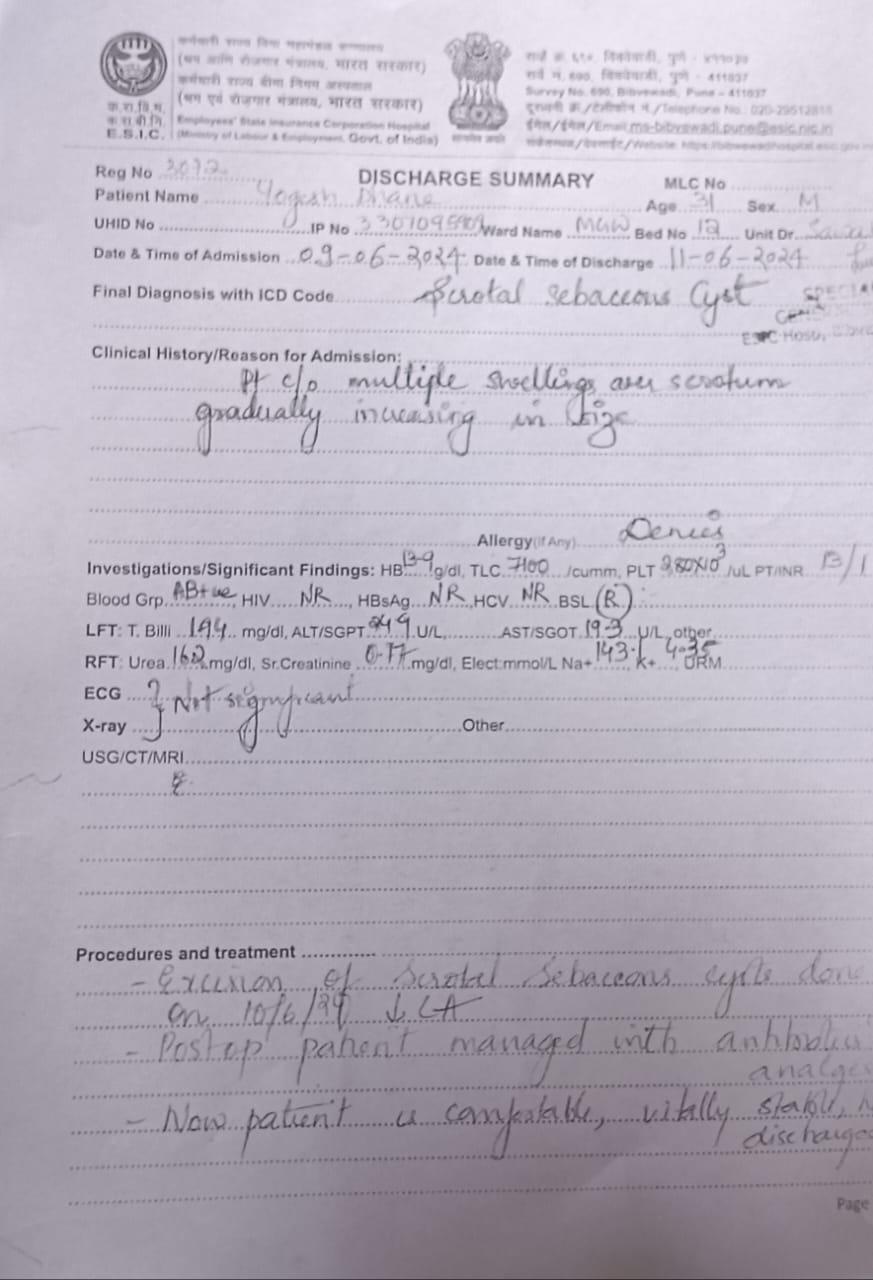 कर्मचारी राज्य विमा महामंडळ रूग्णालय
(श्रम आणि रोजगार मंत्रालय, भारत सरकार)
कर्मचारी राज्य बीमा निगम अस्पताल
(श्रम एवं रोजगार मंत्रालय, भारत सरकार)
Employees' State Insurance Corporation Hospital
(Ministry of Labour & Employment, Govt. of India)
क.रा.वि.म.
क.रा.बी.नि.
E.S.I.C.
सत्यमेव जयते
सर्वे क्र. ६९०, बिबवेवाडी, पुणे - ४११०३७
सर्वे नं. 690, बिबवेवाडी, पुणे - 411037
Survey No. 690, Bibvewadi, Pune - 411037
दूरध्वनी क्र./टेलीफोन नं./Telephone No.: 020-29512815
ईमेल/ईमेल/Email:ms-bibvewadi.pune@esic.nic.in
Reg No 3072 DISCHARGE SUMMARY MLC No
Patient Name Yogesh Age 31 Sex M
UHID No IP No Ward Name MGW Bed No 12 Unit Dr.
Date & Time of Admission 09-06-2024 Date & Time of Discharge 11-06-2024
Final Diagnosis with ICD Code Scrotal Sebaceous Cyst
Clinical History/Reason for Admission:
Pt c/o multiple swellings over scrotum
gradually increasing in size
Allergy(If Any) Denies
Investigations/Significant Findings: HB 13.9 g/dl, TLC 7100 /cumm, PLT /uL PT/INR 13/1
Blood Grp. AB+ve, HIV NR, HBsAg NR, HCV NR BSL (R)
LFT: T. Billi mg/dl, ALT/SGPT U/L, AST/SGOT 19.3 U/L, other
RFT: Urea mg/dl, Sr.Creatinine 0.77 mg/dl, Elect:mmol/L Na+ 143.1 K+ 4.35 URM
ECG } Not significant
X-ray Other
USG/CT/MRI
Procedures and treatment
- Excision of Scrotal Sebaceous cysts done
on 10/6/24 ↓ LA
- Post op patient managed with
- Now patient is comfortable, vitally stable,
discharge
Page